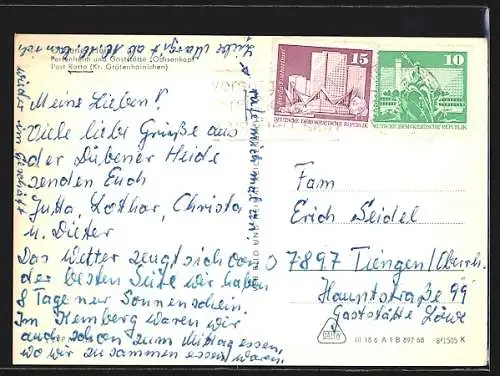 Ferienheim und Gaststätte „Ochsenkopf"
Post Rotta (Kr. Gräfenhainichen)
Meine Lieben!
Viele liebe Grüße aus
der Dübener Heide
senden Euch
Jutta, Lothar, Christa
u. Dieter
Das Wetter zeugt sich von
der besten Seite wir haben
8 Tage nur Sonnenschein.
Im Kemberg waren wir
auch schon zum Mittag essen,
wo wir zusammen essen waren.
15
DEUTSCHE DEMOKRATISCHE REPUBLIK
10
DEUTSCHE DEMOKRATISCHE REPUBLIK
Fam
Erich Seidel
7897 Tiengen/Oberrh.
Hauptstraße 99
Gaststätte Löwe
III 18 6 A 1 B 897 68 8/1505 K